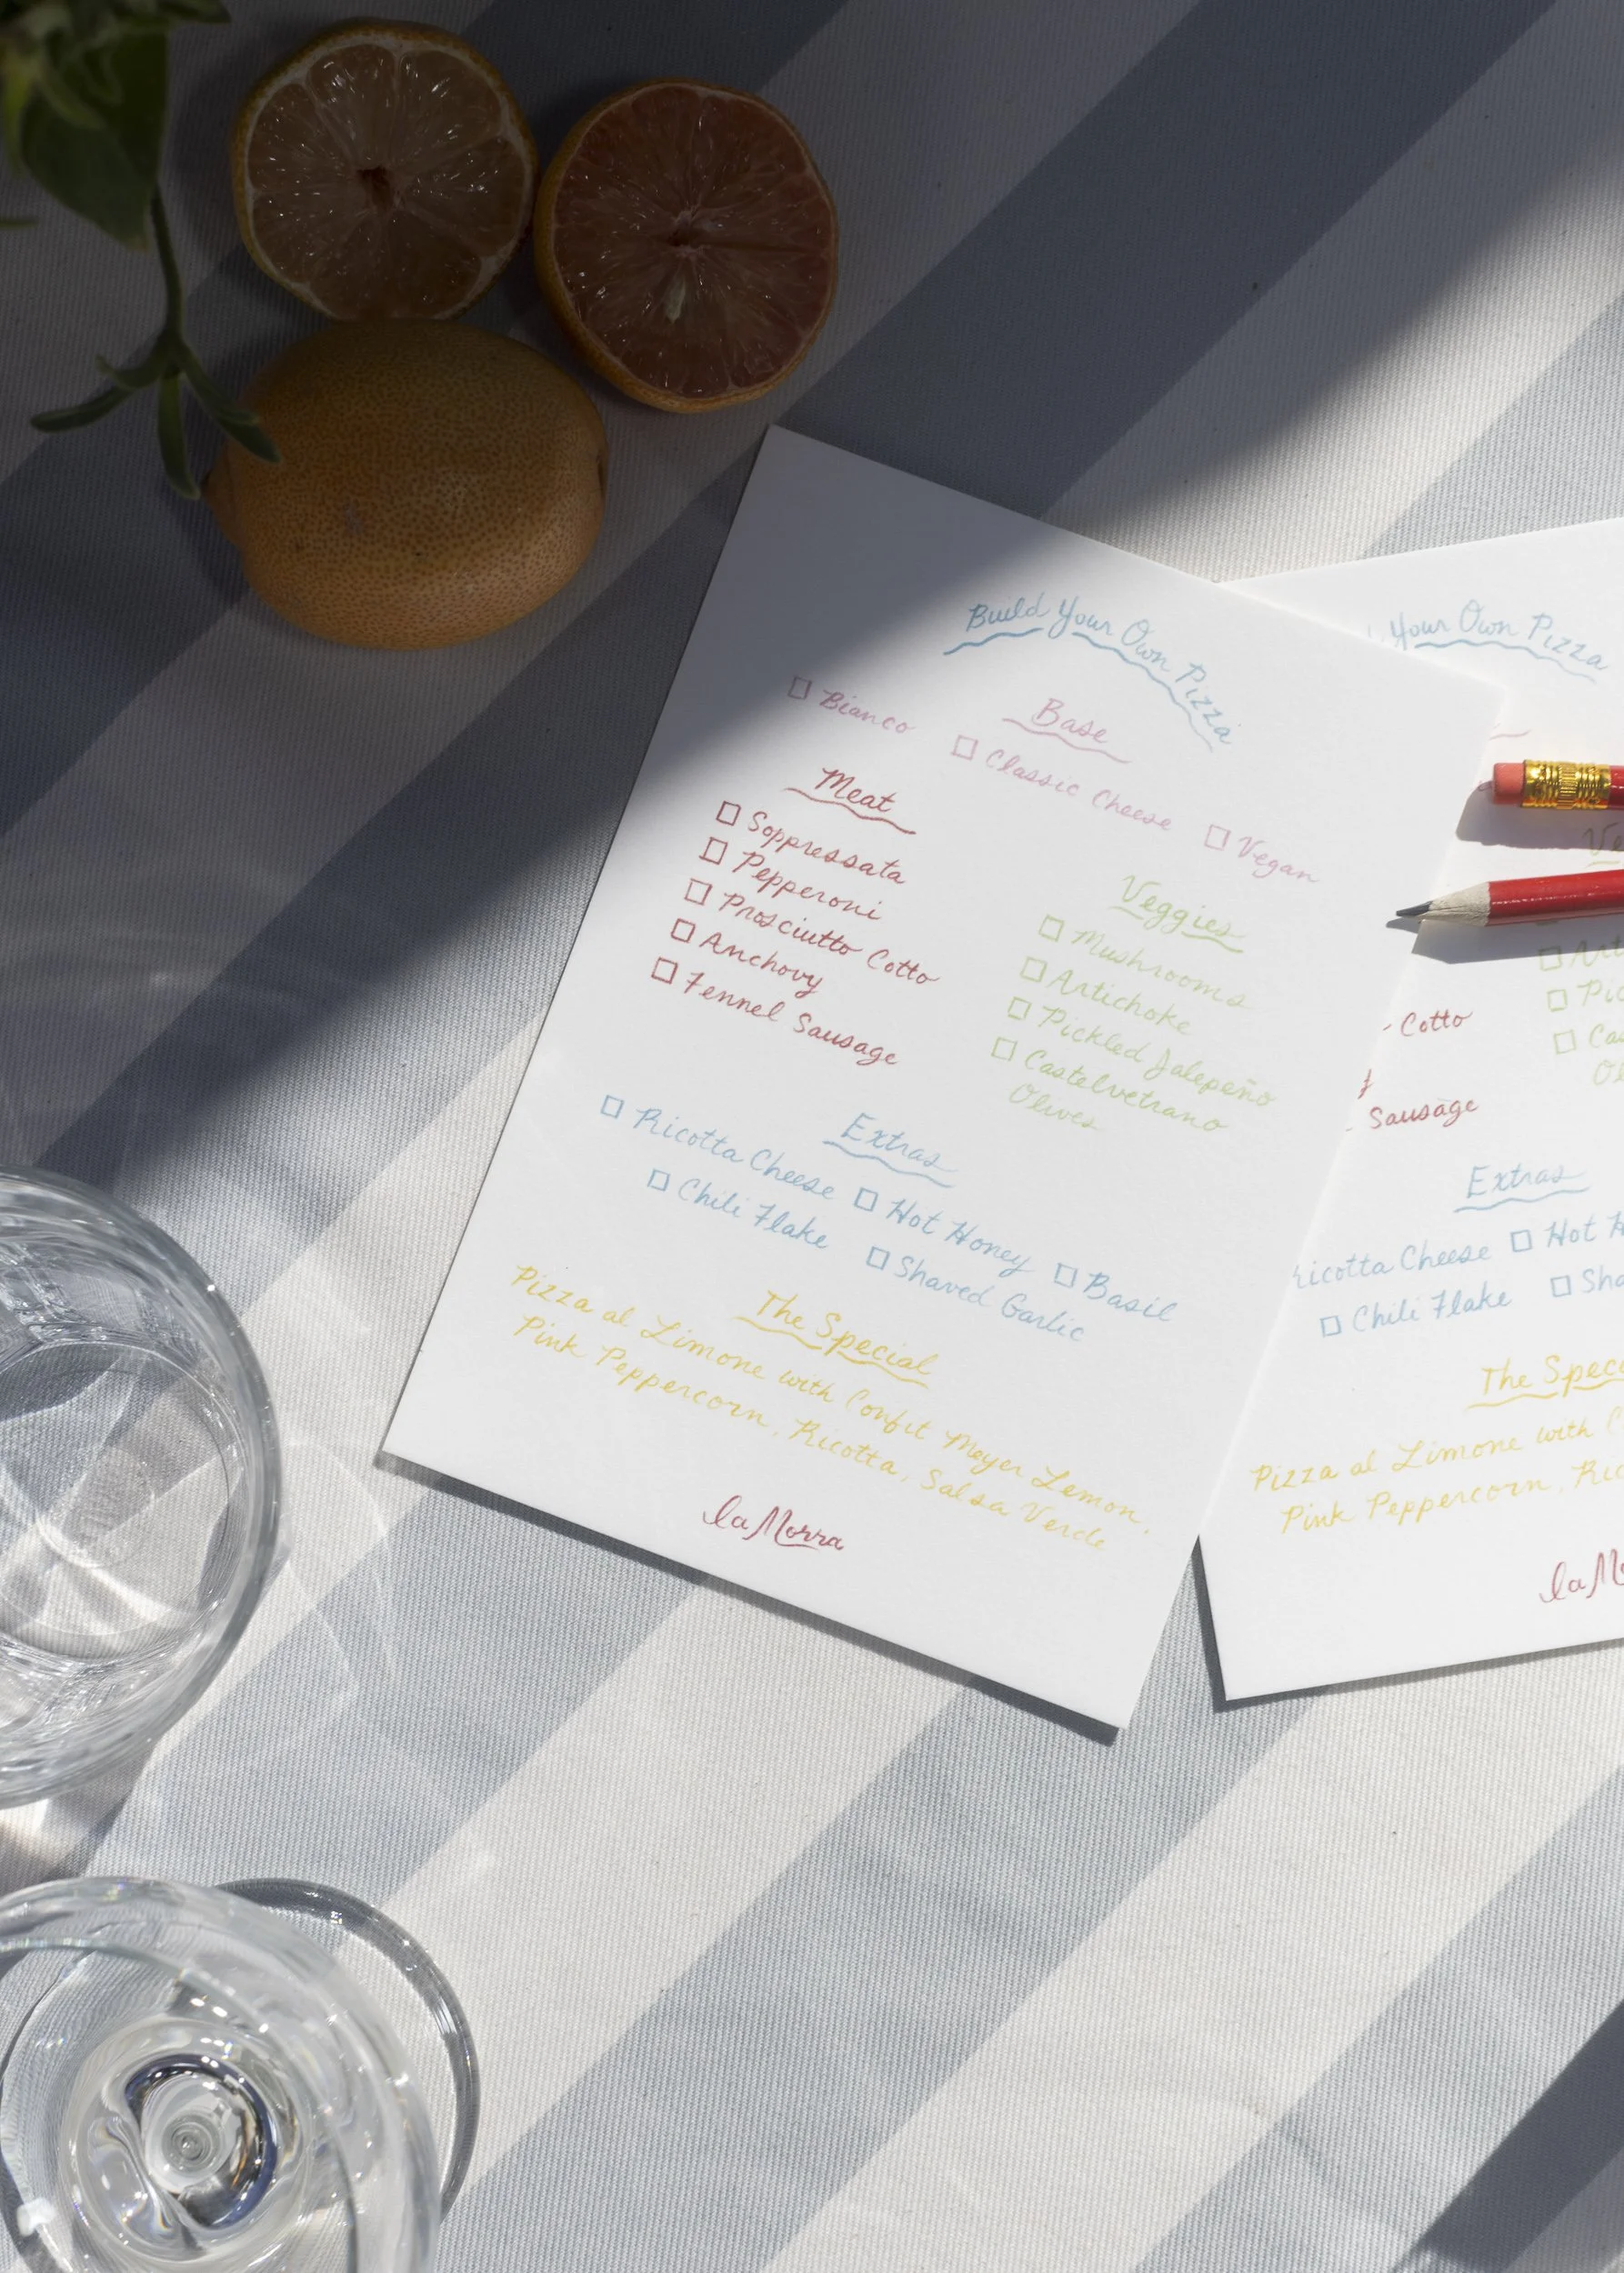 Build Your Own Pizza
Base
☐ Bianco ☐ Classic Cheese ☐ Vegan
Meat
☐ Soppressata
☐ Pepperoni
☐ Prosciutto Cotto
☐ Anchovy
☐ Fennel Sausage
Veggies
☐ Mushrooms
☐ Artichoke
☐ Pickled Jalepeño
☐ Castelvetrano
Olives
Extras
☐ Ricotta Cheese ☐ Hot Honey ☐ Basil
☐ Chili Flake ☐ Shaved Garlic
The Special
Pizza al Limone with Confit Meyer Lemon,
Pink Peppercorn, Ricotta, Salsa Verde
la Morra
Your Own Pizza
Cotto
Sausage
Extras
ricotta Cheese ☐ Hot
☐ Chili Flake ☐
The
Pizza al Limone with
Pink Peppercorn,
la